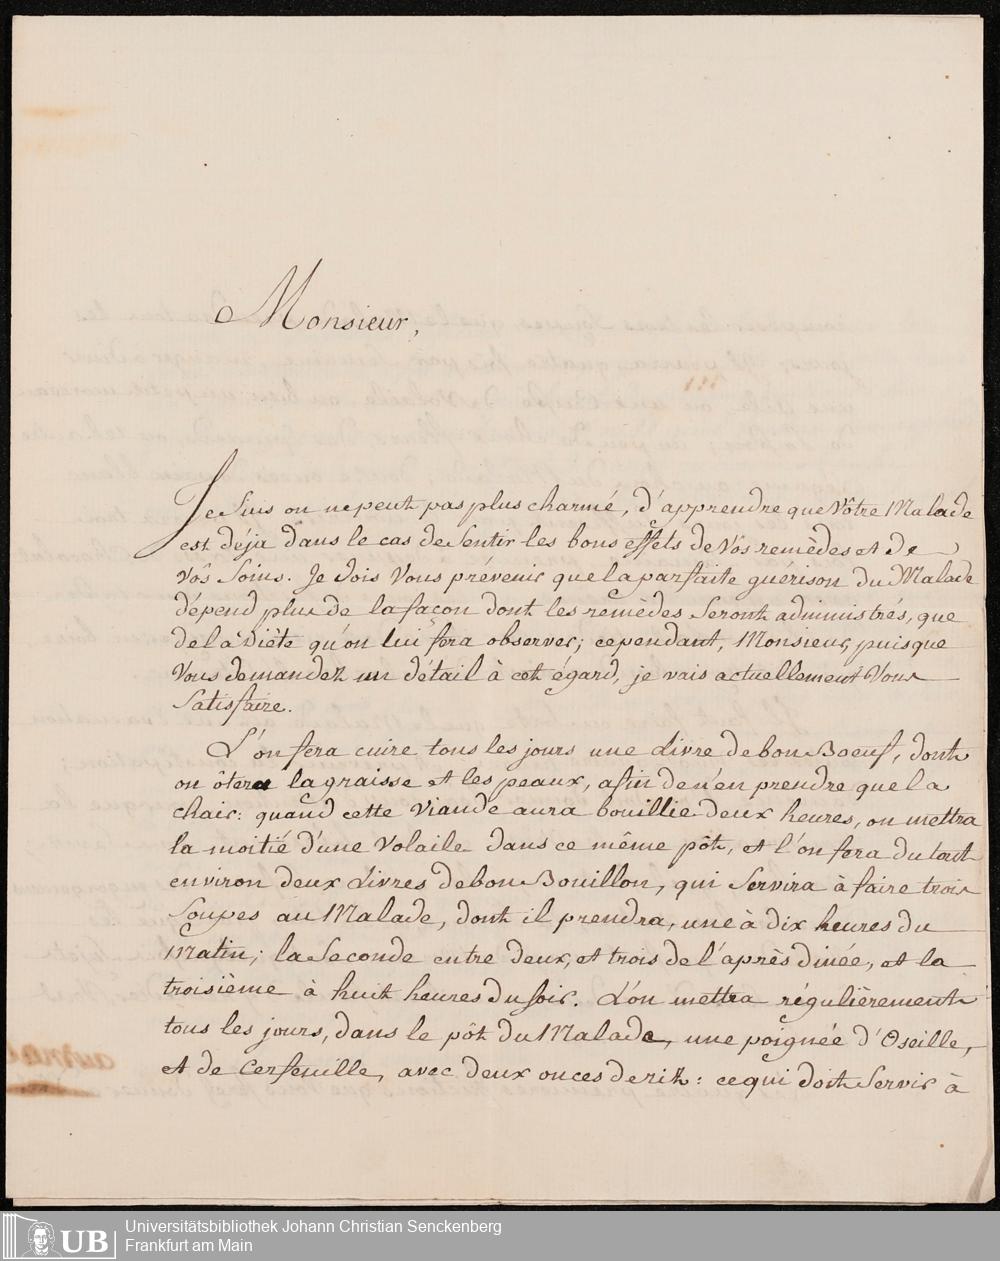 Monsieur,
Je Suis on ne peut pas plus charmé, d'apprendre que Vôtre Malade
est déja dans le cas de Sentir les bons effets de Vôs remèdes et de
Vôs Soins. Je dois Vous prévenir que la parfaite guérison du Malade
dépend plus de la façon dont les remèdes Seront administrés, que
de la Diète qu'on lui fera observer; cependant, Monsieur, puisque
Vous demandez un détail à cet égard, je vais actuellement Vous
Satisfaire.
L'on fera cuire tous les jours une Livre de bon Boeuf, dont
on ôtera la graisse et les peaux, afin de n'en prendre que la
chair: quand cette Viande aura bouillie deux heures, on mettra
la moitié d'une Volaile dans ce même pôt, et l'on fera du tout
environ deux Livres de bon Bouillon, qui Servira à faire trois
Soupes au Malade, dont il prendra, une à dix heures du
Matin; la Seconde entre deux, et trois de l'après dinée, et la
troisième à huit heures du soir. L'on mettra régulièrement
tous les jours, dans le pôt du Malade, une poignée d'Oseille,
et de Cerfeuille, avec deux onces de riz: ce qui doit Servir à
UB
Universitätsbibliothek Johann Christian Senckenberg
Frankfurt am Main